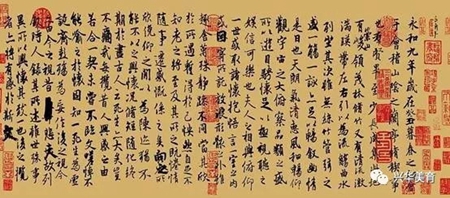 永和九年歲在癸丑暮春之初會
于會稽山陰之蘭亭脩稧事
也羣賢畢至少長咸集此地
有崇山峻領茂林脩竹又有清流激
湍暎帶左右引以為流觴曲水
列坐其次雖無絲竹管弦之
盛一觴一詠亦足以暢敘幽情
是日也天朗氣清惠風和暢仰
觀宇宙之大俯察品類之盛
所以遊目騁懷足以極視聽之
娛信可樂也夫人之相與俯仰
一世或取諸懷抱悟言一室之內
或因寄所託放浪形骸之外雖
趣舍萬殊靜躁不同當其欣
於所遇暫得於己怏然自足不
知老之將至及其所之既惓情
隨事遷感慨係之矣向之所
欣俛仰之間以為陳迹猶不
能不以之興懷況脩短隨化終
期於盡古人云死生亦大矣豈
不痛哉每攬昔人興感之由
若合一契未嘗不臨文嗟悼不
能喻之於懷固知一死生為虛
誕齊彭殤為妄作後之視今
亦由今之視昔悲夫故列
敘時人錄其所述雖世殊事
異所以興懷其致一也後之攬
者亦將有感於斯文
兴华美育